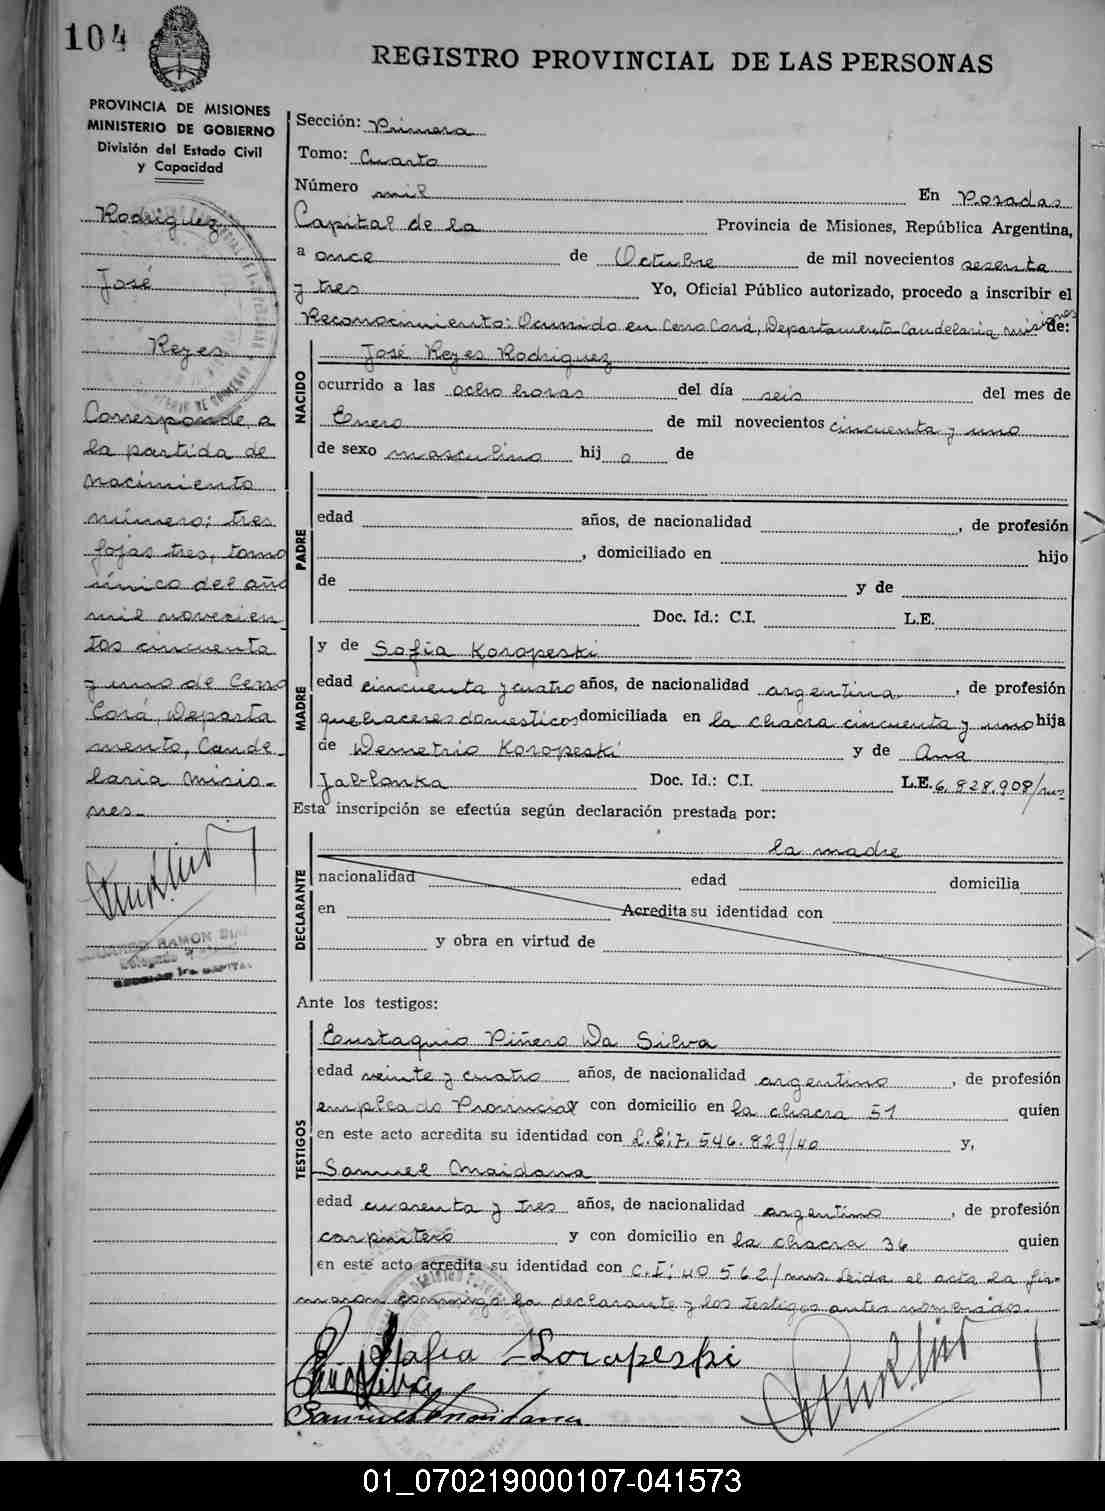 104
REGISTRO PROVINCIAL DE LAS PERSONAS
PROVINCIA DE MISIONES
MINISTERIO DE GOBIERNO
División del Estado Civil
y Capacidad
Rodriguez
José
Reyes
Corresponde a
la partida de
nacimiento
número: tres
fojas tres, tomo
único del año
mil novecien
tos cincuenta
y uno de Cerro
Corá, Departa
mento, Cande-
laria Misio-
nes.-
RAMON
CAPITAL
Sección: Primera
Tomo: Cuarto
Número mil En Posadas
Capital de la Provincia de Misiones, República Argentina,
a once de Octubre de mil novecientos sesenta
y tres Yo, Oficial Público autorizado, procedo a inscribir el
Reconocimiento: Ocurrido en Cerro Corá, Departamento Candelaria, misiones de:
NACIDO
José Reyes Rodriguez
ocurrido a las ocho horas del día seis del mes de
Enero de mil novecientos cincuenta y uno
de sexo masculino hij o de
PADRE
edad años, de nacionalidad , de profesión
, domiciliado en hijo
de y de
Doc. Id.: C.I. L.E.
MADRE
y de Sofía Koropeski
edad cincuenta y cuatro años, de nacionalidad argentina, de profesión
quehaceres domesticos domiciliada en la chacra cincuenta y uno hija
de Demetrio Koropeski y de Ana
Jablonka Doc. Id.: C.I. L.E. 6.828.908/mis
Esta inscripción se efectúa según declaración prestada por:
DECLARANTE
la madre
nacionalidad edad domicilia
en Acredita su identidad con
y obra en virtud de
Ante los testigos:
TESTIGOS
Eustaquio Piñero Da Silva
edad veinte y cuatro años, de nacionalidad argentino, de profesión
empleado Provincial y con domicilio en la chacra 51 quien
en este acto acredita su identidad con L.E: 7. 546. 829/40 y,
Samuel Maidana
edad cuarenta y tres años, de nacionalidad argentino, de profesión
carpintero y con domicilio en la chacra 36 quien
en este acto acredita su identidad con C.I: 40 562/mis. Leida el acta la fir-
maron conmigo la declarante y los testigos antes nombrados.
Sofia Koropeski
Samuel Maidana
01_070219000107-041573